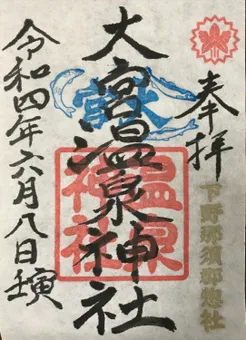 奉拝
下野那須郡惣社
大宮温泉神社
温泉
神社
令和四年六月八日